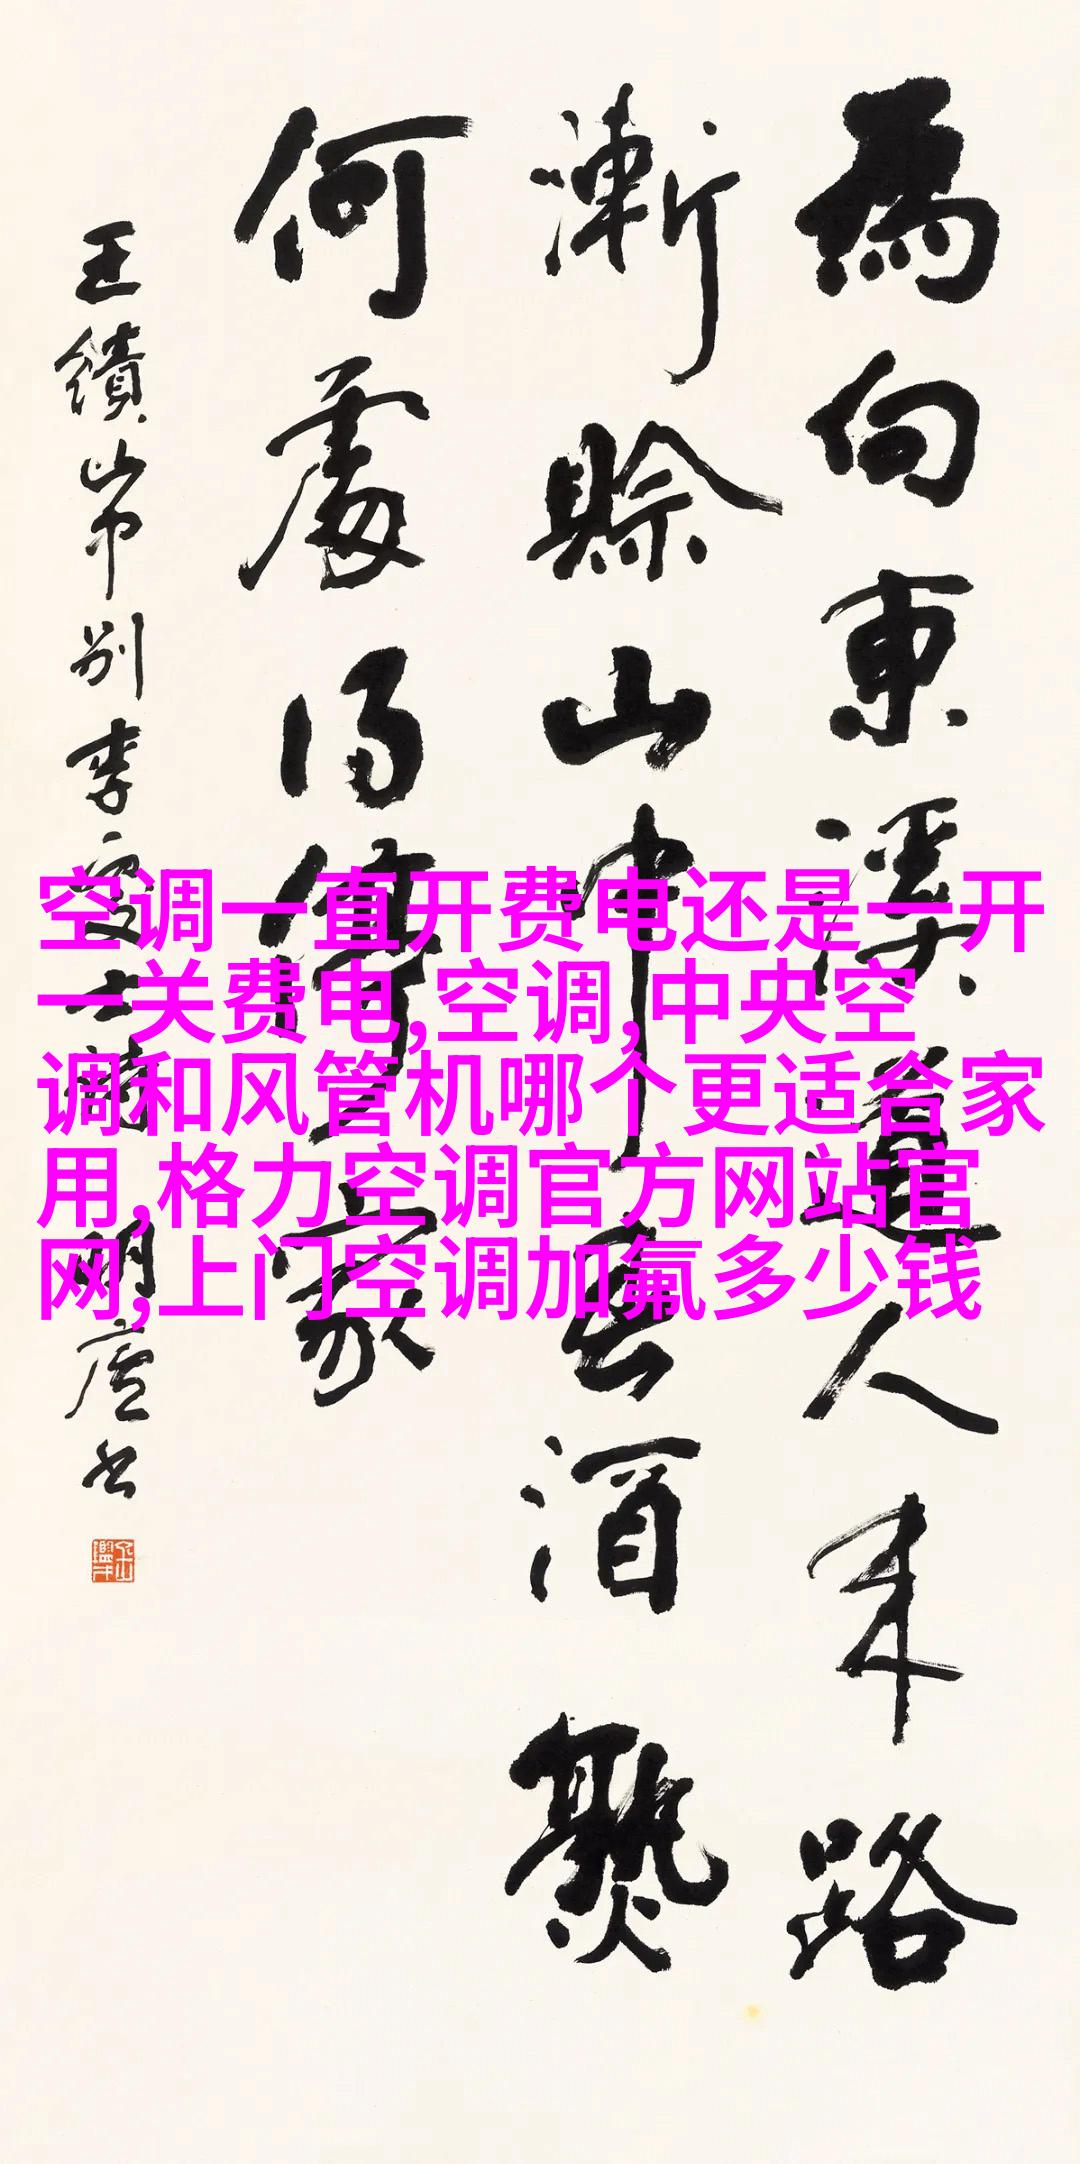 為向東溪道人来路
漸賒山中春酒熟
何處得停家
王績山中別李處士詩 廬书
空调一直开费电还是一开
一关费电,空调,中央空
调和风管机哪个更适合家
用,格力空调官方网站官
网,上门空调加氟多少钱